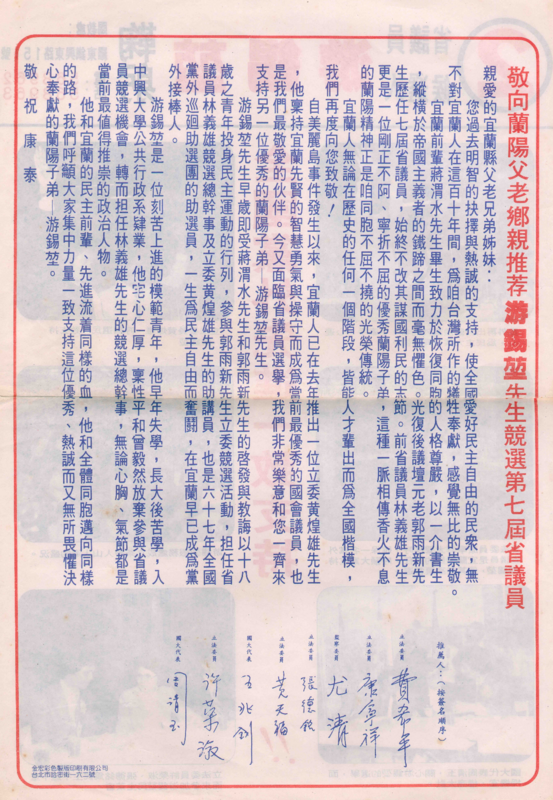 敬向蘭陽父老鄉親推荐游錫堃先生競選第七屆省議員
親愛的宜蘭縣父老兄弟姊妹：
您過去明智的抉擇與熱誠的支持，使全國愛好民主自由的民衆，無
不對宜蘭人在這百十年間，爲咱台灣所作的犧牲奉獻，感覺無比的崇敬。
宜蘭前輩蔣渭水先生畢生致力於恢復同胞的人格尊嚴，以一介書生
，縱橫於帝國主義者的鐵蹄之間而毫無懼色。光復後議壇元老郭雨新先
生歷任七屆省議員，始終不改其謀國利民的志節。前省議員林義雄先生
更是一位剛正不阿、寧折不屈的優秀蘭陽子弟，這種一脈相傳香火不息
的蘭陽精神正是咱同胞不屈不撓的光榮傳統。
宜蘭人無論在歷史的任何一個階段，皆能人才輩出而爲全國楷模，
我們再度向您致敬！
自美麗島事件發生以來，宜蘭人已在去年推出一位立委黃煌雄先生
，他秉持宜蘭先賢的智慧勇氣與操守而成爲當前最優秀的國會議員，也
是我們最敬愛的伙伴。今又面臨省議員選舉，我們非常樂意和您一齊來
支持另一位優秀的蘭陽子弟—游錫堃先生。
游錫堃先生早歲即受蔣渭水先生和郭雨新先生的啓發與教誨以十八
歲之青年投身民主運動的行列，參與郭雨新先生立委競選活動，担任省
議員林義雄競選總幹事及立委黃煌雄先生的助講員，也是六十七年全國
黨外巡迴助選團的助選員，一生爲民主自由而奮鬪，在宜蘭早已成爲黨
外接棒人。
游錫堃是一位刻苦上進的模範青年，他早年失學，長大後苦學，入
中興大學公共行政系肄業，他宅心仁厚，稟性平和曾毅然放棄參與省議
員競選機會，轉而担任林義雄先生的競選總幹事，無論心胸、氣節都是
當前最值得推崇的政治人物。
他和宜蘭的民主前輩、先進流着同樣的血，他和全體同胞邁向同樣
的路，我們呼籲大家集中力量一致支持這位優秀、熱誠而又無所畏懼決
心奉獻的蘭陽子弟—游錫堃。
敬祝康泰
推薦人：（按簽名順序）
費希平
立法委員 康寧祥
監察委員 尤清
立法委員 張德銘
立法委員 黃天福
國大代表 王兆釧
立法委員 許榮淑
國大代表 周清玉
金宏彩色製版印刷有限公司